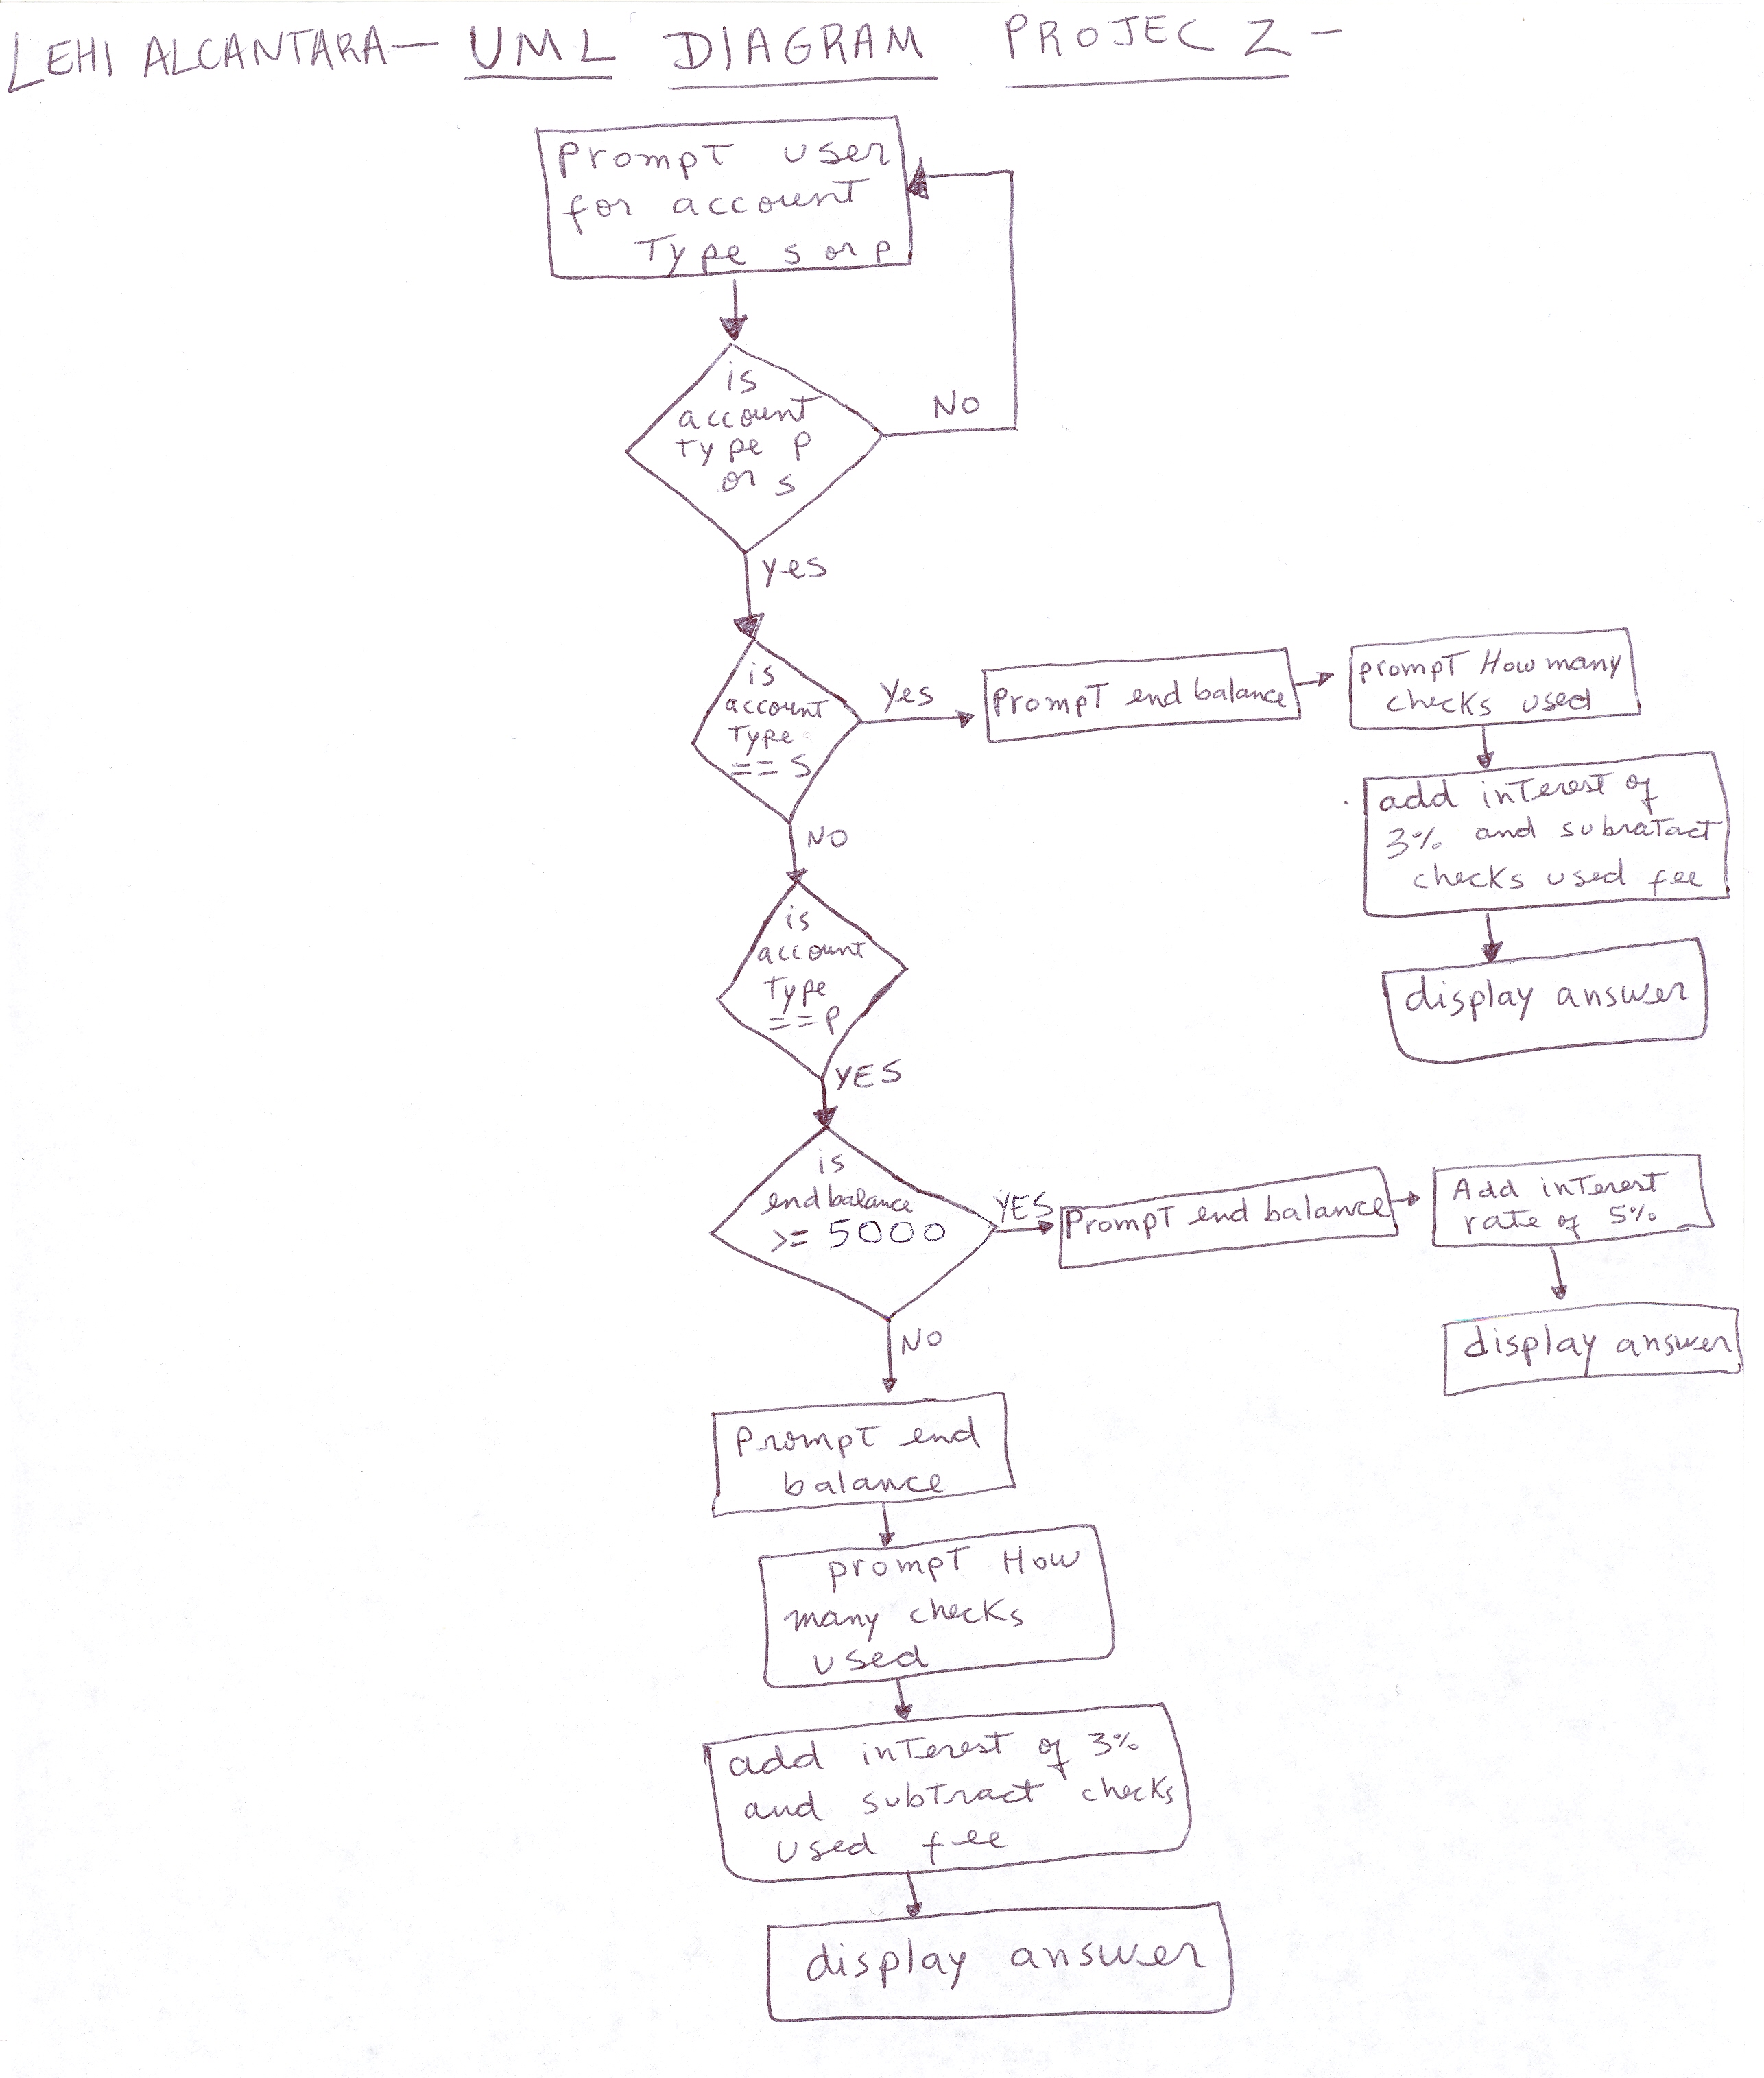 LEHI ALCANTARA— UML DIAGRAM PROJEC 2 -
Prompt user
for account
Type s or p
is
account
type p
or s
NO
yes
is
account
type
== S
Yes
Prompt end balance
prompt How many
checks used
add interest of
3% and subratact
checks used fee
display answer
NO
is
account
type
==p
YES
is
end balance
>= 5000
YES
Prompt end balance
Add interest
rate of 5%
display answer
NO
Prompt end
balance
prompt How
many checks
used
add interest of 3%
and subtract checks
used fee
display answer